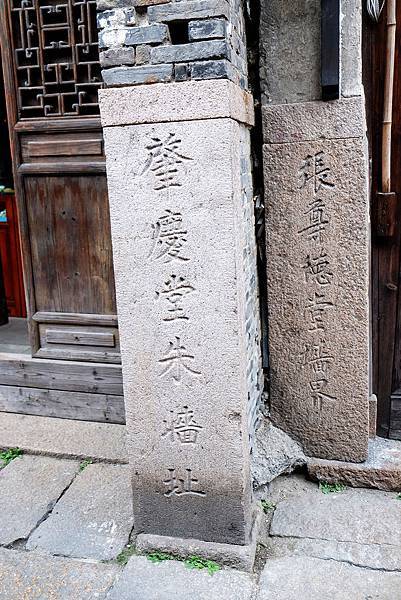 肇慶堂朱墻址
張尊德堂墻界